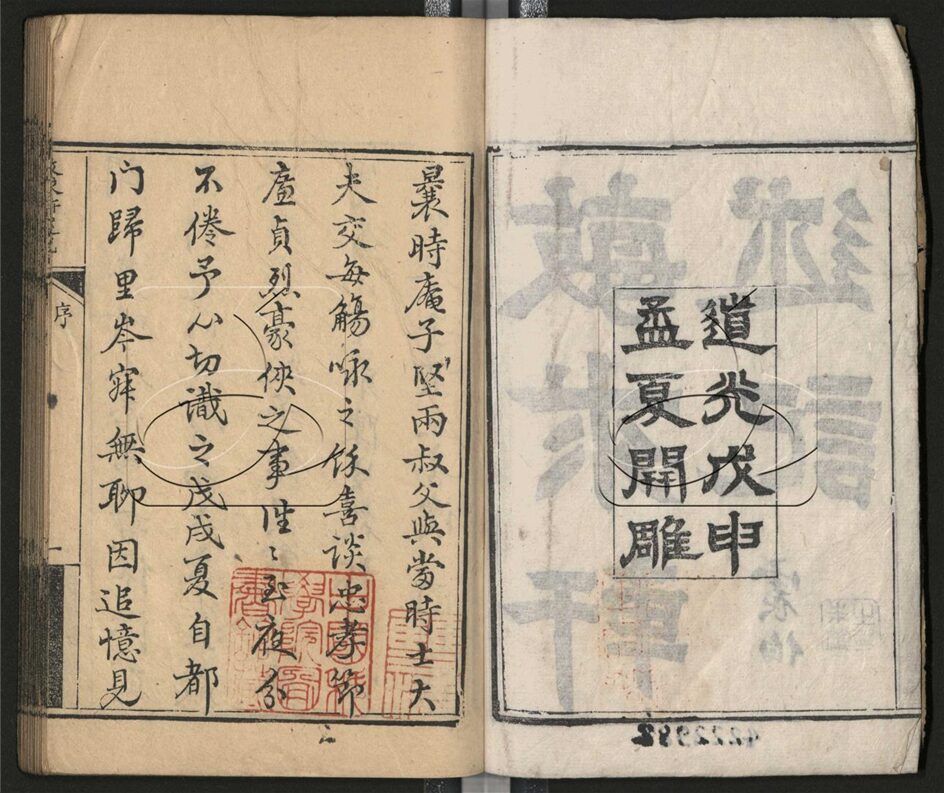 道光戊申
孟夏開雕
曩時庵子堅兩叔父與當時士大
夫交每觴咏之餘喜談忠孝節
廉貞烈豪俠之事往〻至夜分
不倦予心切識之戊戌夏自都
门歸里岑寂無聊因追憶見
序
一